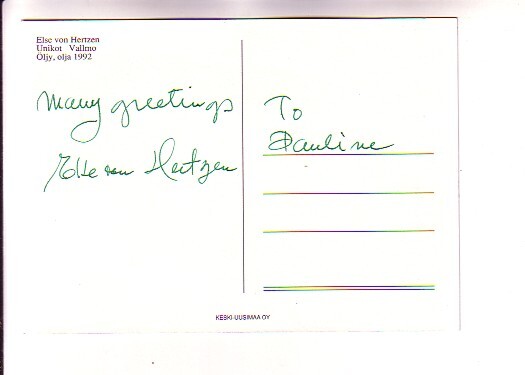 Else von Hertzen
Unikot Vallmo
Öljy, olja 1992
Many greetings
Else von Hertzen
To
Pauline
KESKI-UUSIMAA OY